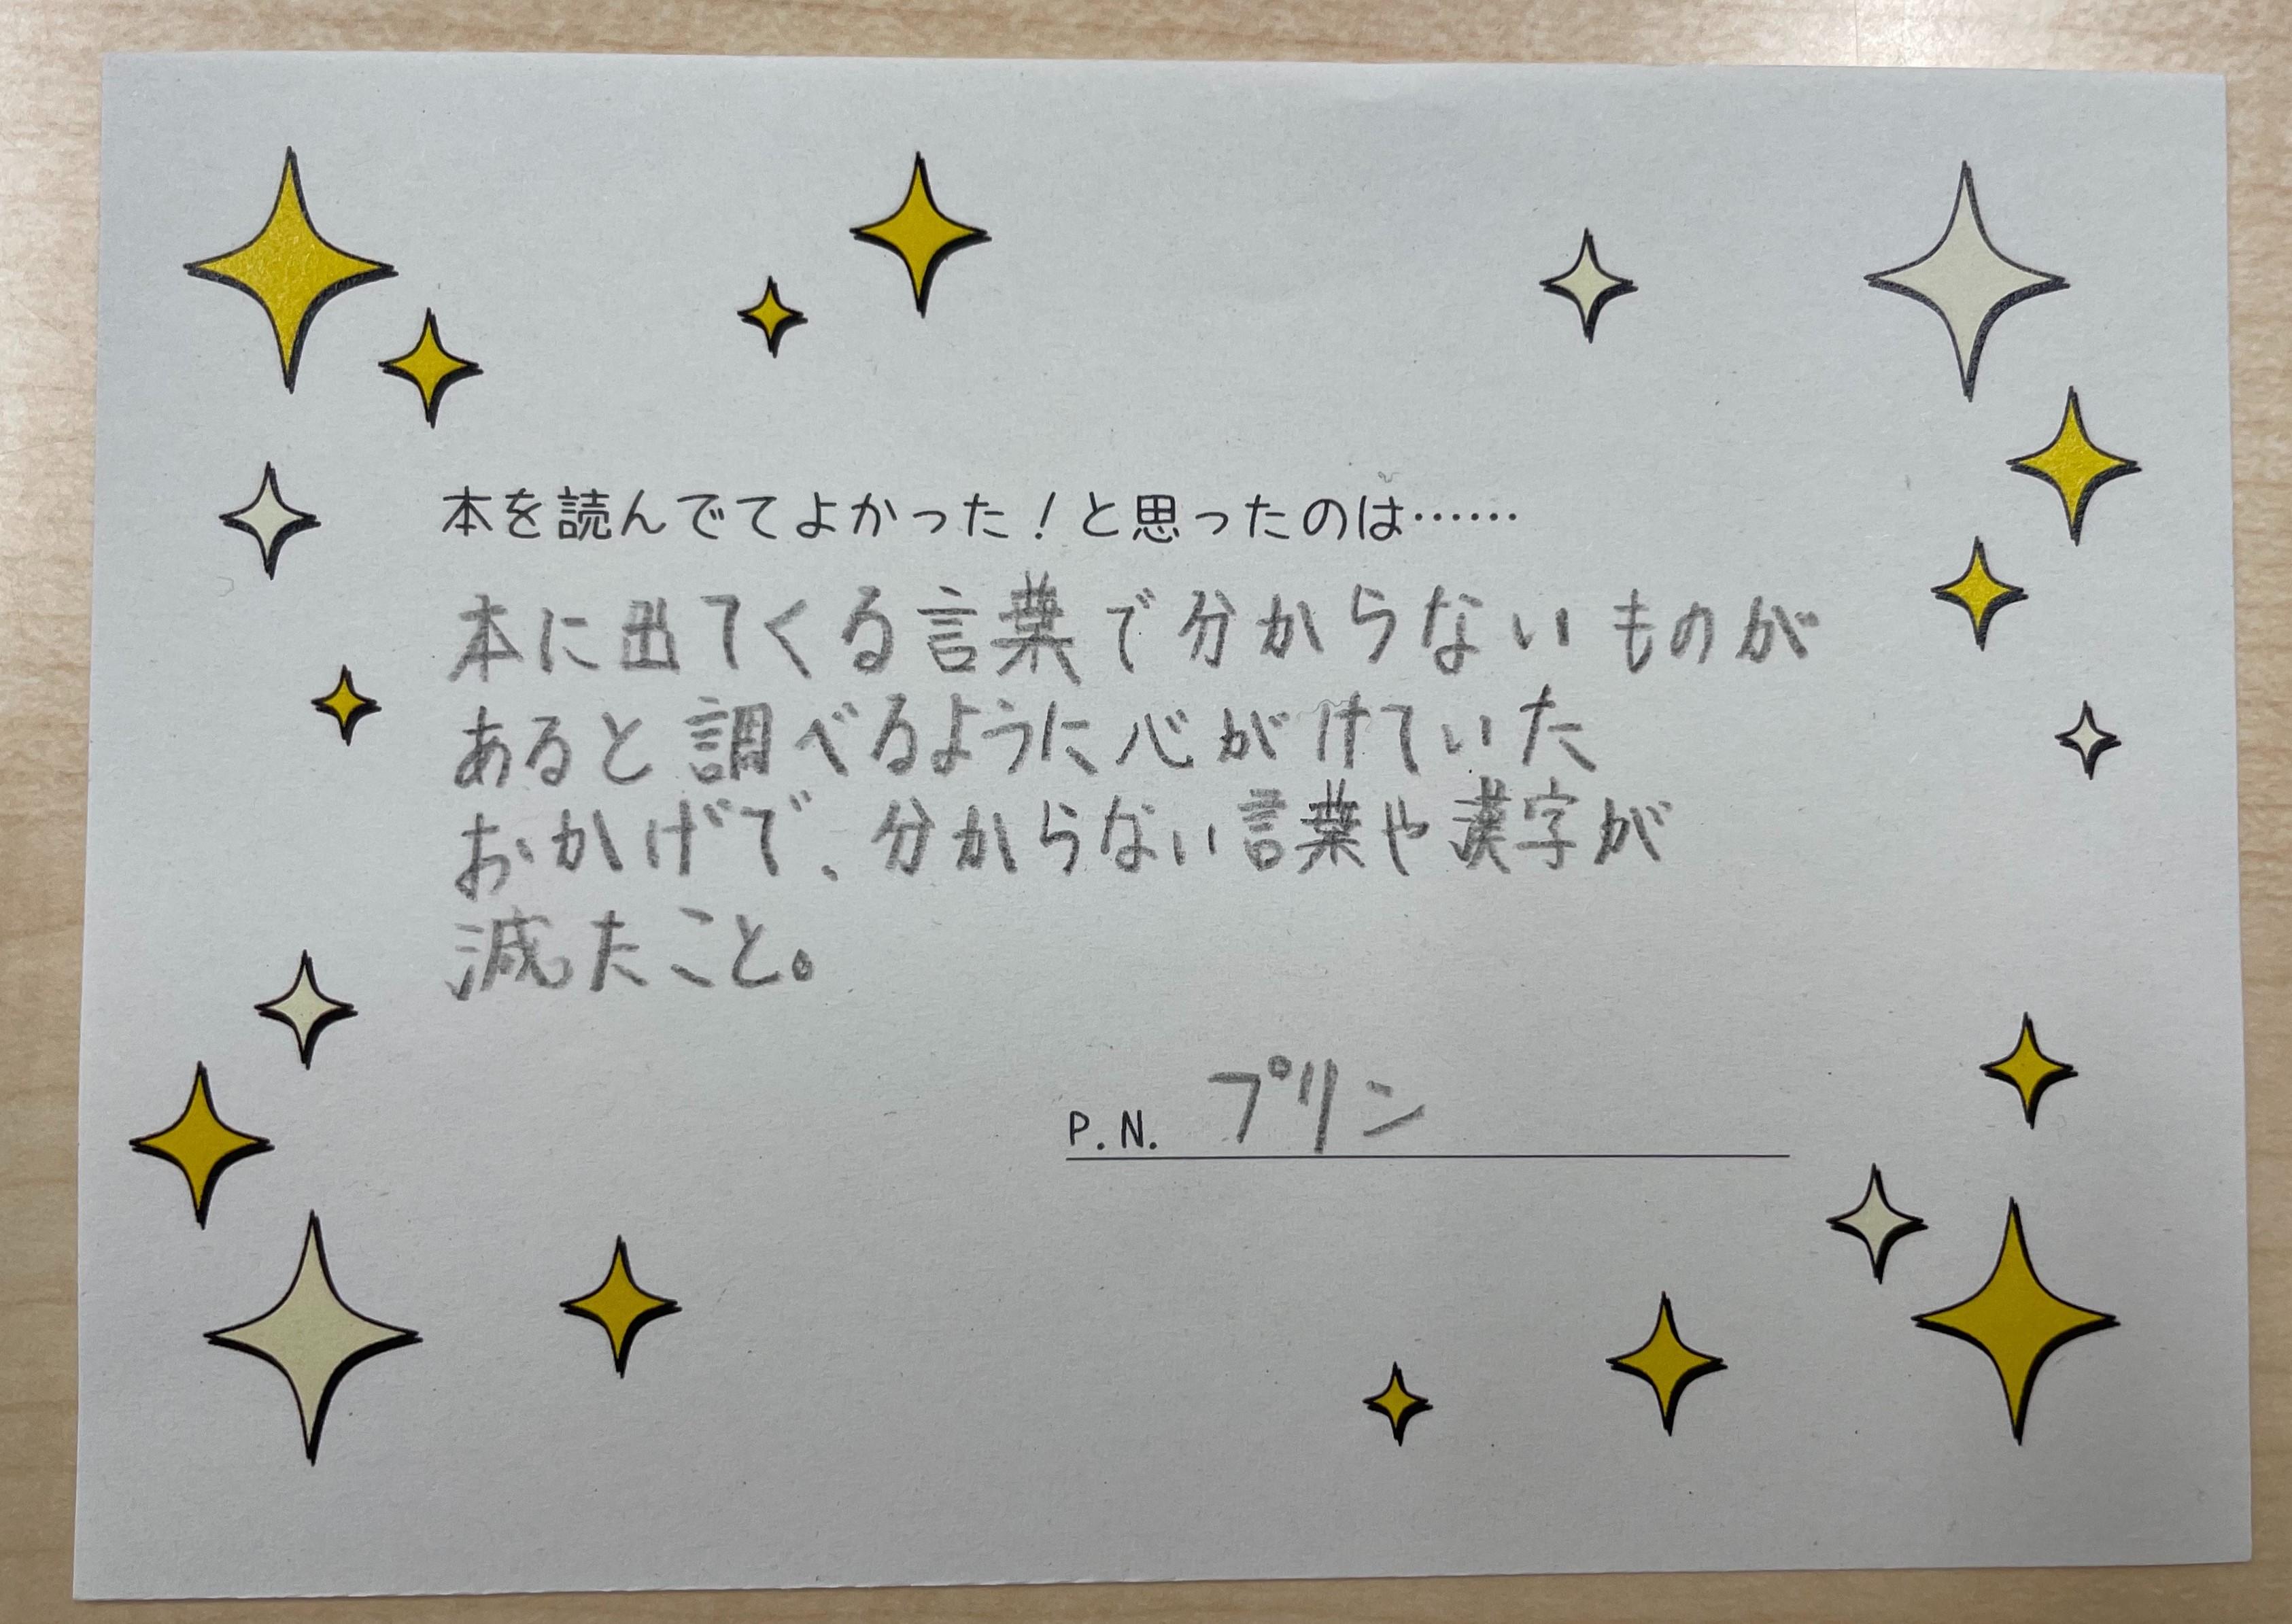 本を読んでてよかった!と思ったのは……
本に出てくる言葉で分からないものが
あると調べるように心がけていた
おかげで、分からない言葉や漢字が
減ったこと。
P.N. プリン